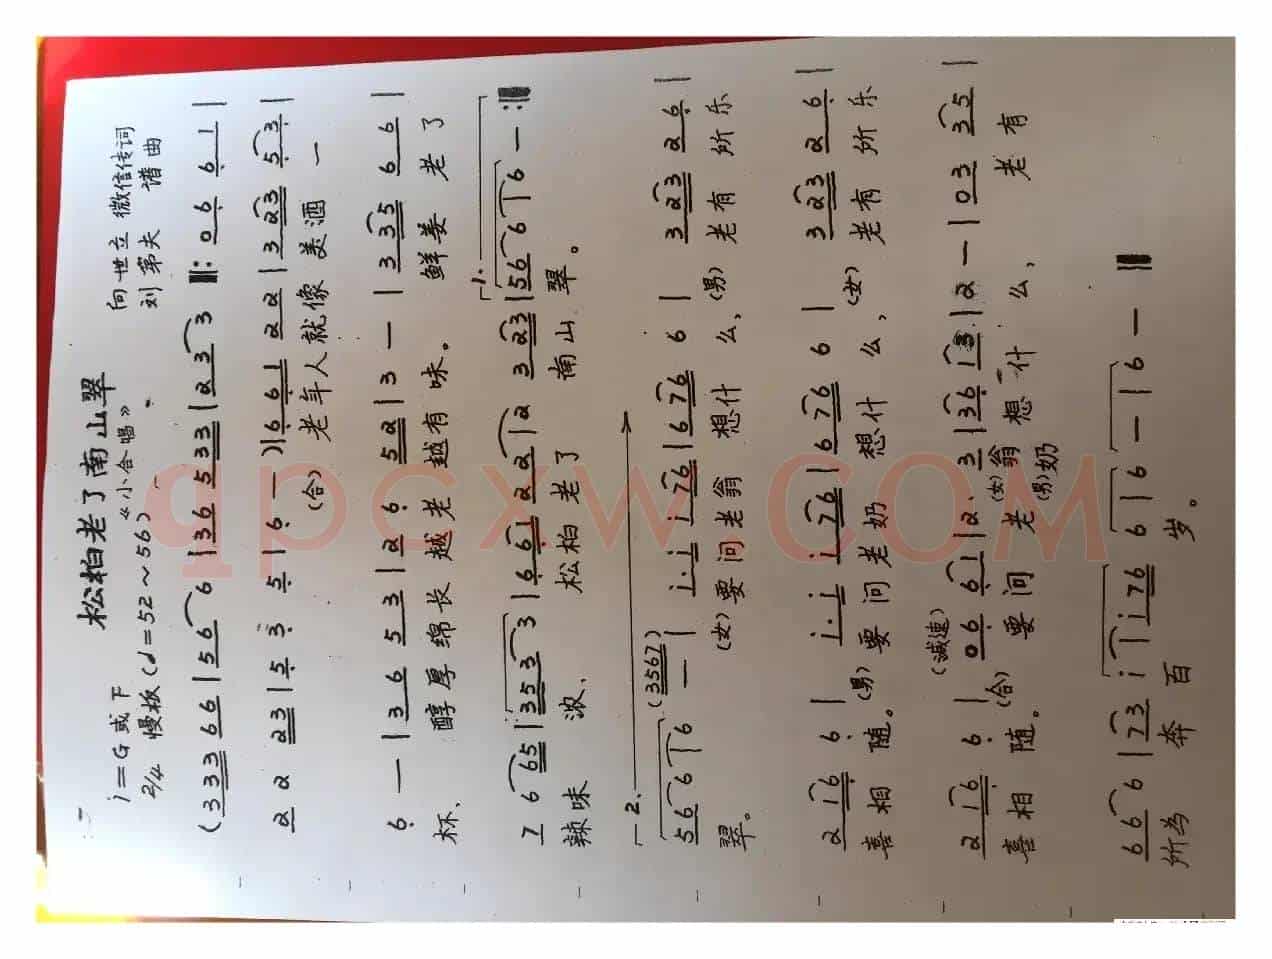 松柏老了南山翠
《小合唱》
1=G或下
2/4 慢板(♩=52~56)
向世立 微信传词
刘第夫 谱曲
(3 3 3 6 6 | 5 6 6 | 3 6 5 3 3 | 2 3 3 ‖: 0 6 6 1 |
2 2 2 3 | 5 3 5 | 6 — ) | 6 6 1 2 2 | 3 2 3 5 3 |
(合) 老年人就像 美酒 一
6 — | 3 6 5 3 | 2 6 5 2 | 3 — | 3 3 5 6 6 |
杯、 醇厚绵长 越老 越有味。 鲜姜 老了
7 6 6 5 | 3 5 3 3 | 6 6 1 2 2 | 2 3 2 3 | 5 6 6 | 6 — :‖
辣味 浓、 松柏 老了 南山 翠。
1.
2.
(3567)
5 6 6 | 6 — | i· i i 7 6 | 6 7 6 6 | 3 2 3 2 6 |
翠。 (女)要问老翁 想什 么, (男)老有 所乐
2 1 6 6 | i· i i 7 6 | 6 7 6 6 | 3 2 3 2 6 |
喜相 随。 (男)要问老奶 想什 么, (女)老有 所乐
(减速)
2 1 6 6 | 0 6 6 1 | 2· 3 | 3 6 1 3 | 2 — | 0 3 3 5 |
喜相 随。 (合) 要问 老 (女)翁 想一什 么, 老有
(男)奶
6 6 6 | 7 3 i | i 7 6 6 | 6 — | 6 — ‖
所为 奔 百 岁。
qpcxw.COM